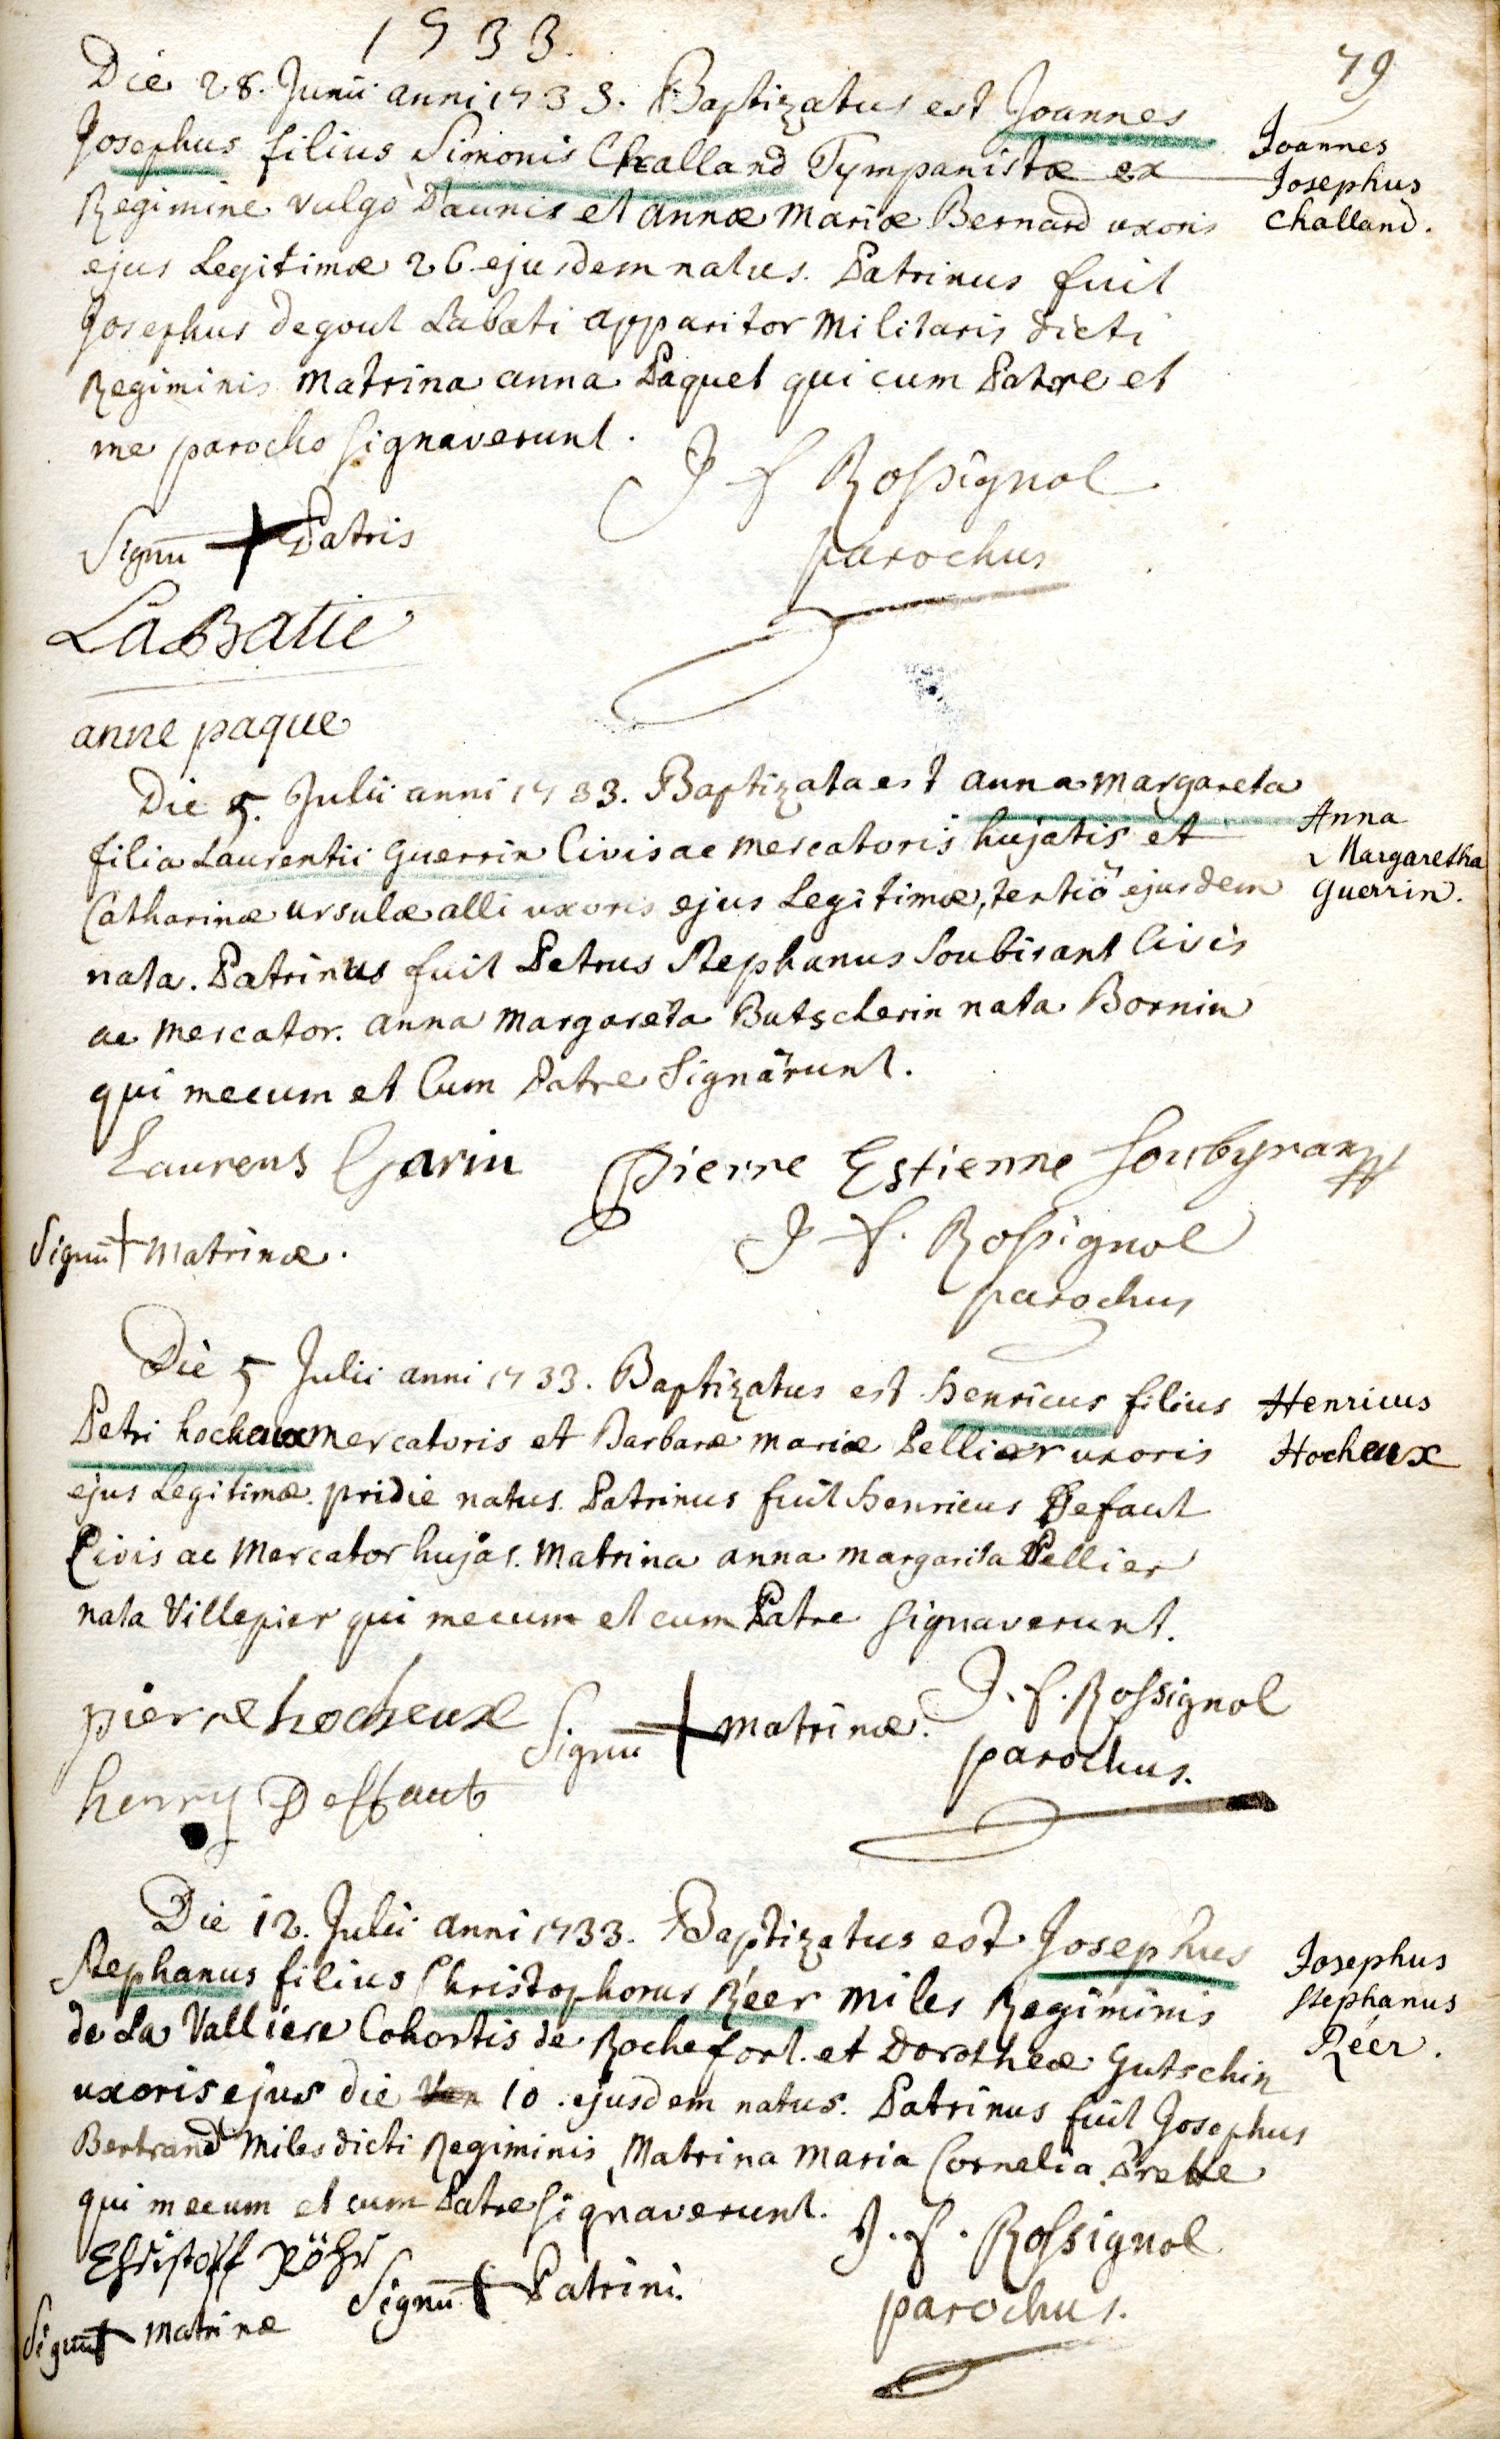 1733.
79
Die 28. Junii anni 1733. Baptizatus est Joannes
Josephus filius Simonis Challand Tympanistæ ex
Regimine vulgò D'aunis et annæ Mariæ Bernard uxoris
ejus Legitimæ 26 ejusdem natus. Patrinus fuit
Josephus degout Labati apparitor Militaris dicti
Regiminis Matrina anna Paquet qui cum Patre et
me parocho signaverunt.
Joannes
Josephus
Challand.
J f Rossignol
parochus
Signũ + Patris
LaBatie
anne paque
Die 5. Julii anni 1733. Baptizata est anna Margareta
filia Laurentii Guerrin Civis ac Mercatoris hujatis et
Catharinæ ursulæ alli uxoris ejus Legitimæ, tertiö ejusdem
nata. Patrinus fuit Petrus Stephanus Soubirant Civis
ac Mercator. anna Margareta Butscherin nata Bornin
qui mecum et Cum Patre Signârunt.
Anna
Margaretha
Guerrin.
Laurens Garin Pierre Estienne Soubyran
J f. Rossignol
parochus
Signũ + Matrinæ.
Die 5 Julii anni 1733. Baptizatus est Henricus filius
Petri hocheux Mercatoris et Barbaræ Mariæ Pellier uxoris
ejus Legitimæ. pridie natus. Patrinus fuit Henricus Defaut
Civis ac Mercator hujas. Matrina anna Margarita Pellier
nata Villepier qui mecum et cum Patre signaverunt.
Henricus
Hocheux
pierre hocheux Signũ + Matrinæ. J. f. Rossignol
parochus.
henry Deffaut
Die 12. Julii anni 1733. Baptizatus est Josephus
Stephanus filius Christophorus Réer Miles Regiminis
de La Valliere Cohortis de Rochefort. et Dorotheæ Gutschin
uxoris ejus die 10. ejusdem natus. Patrinus fuit Josephus
Bertrand Miles dicti Regiminis, Matrina Maria Cornelia
qui mecum et cum Patre signaverunt.
Josephus
Stephanus
Réer.
J. f. Rossignol
parochus.
Christoff Röhr
Signũ + Patrini.
Signũ + Matrinæ